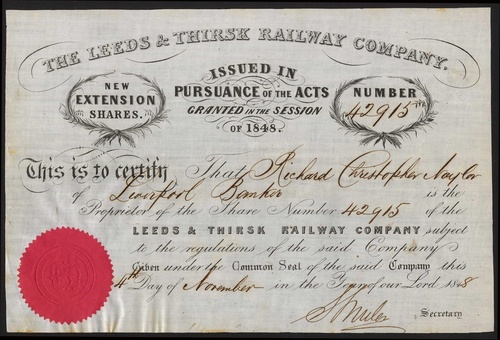 THE LEEDS & THIRSK RAILWAY COMPANY.
NEW
EXTENSION
SHARES.
ISSUED IN
PURSUANCE OF THE ACTS
GRANTED IN THE SESSION
OF 1848.
NUMBER
42915
This is to certify That Richard Christopher Naylor
of Liverpool Banker is the
Proprietor of the Share Number 42915 of the
LEEDS & THIRSK RAILWAY COMPANY subject
to the regulations of the said Company
Given under the Common Seal of the said Company this
4th Day of November in the Year of our Lord 1848
Secretary